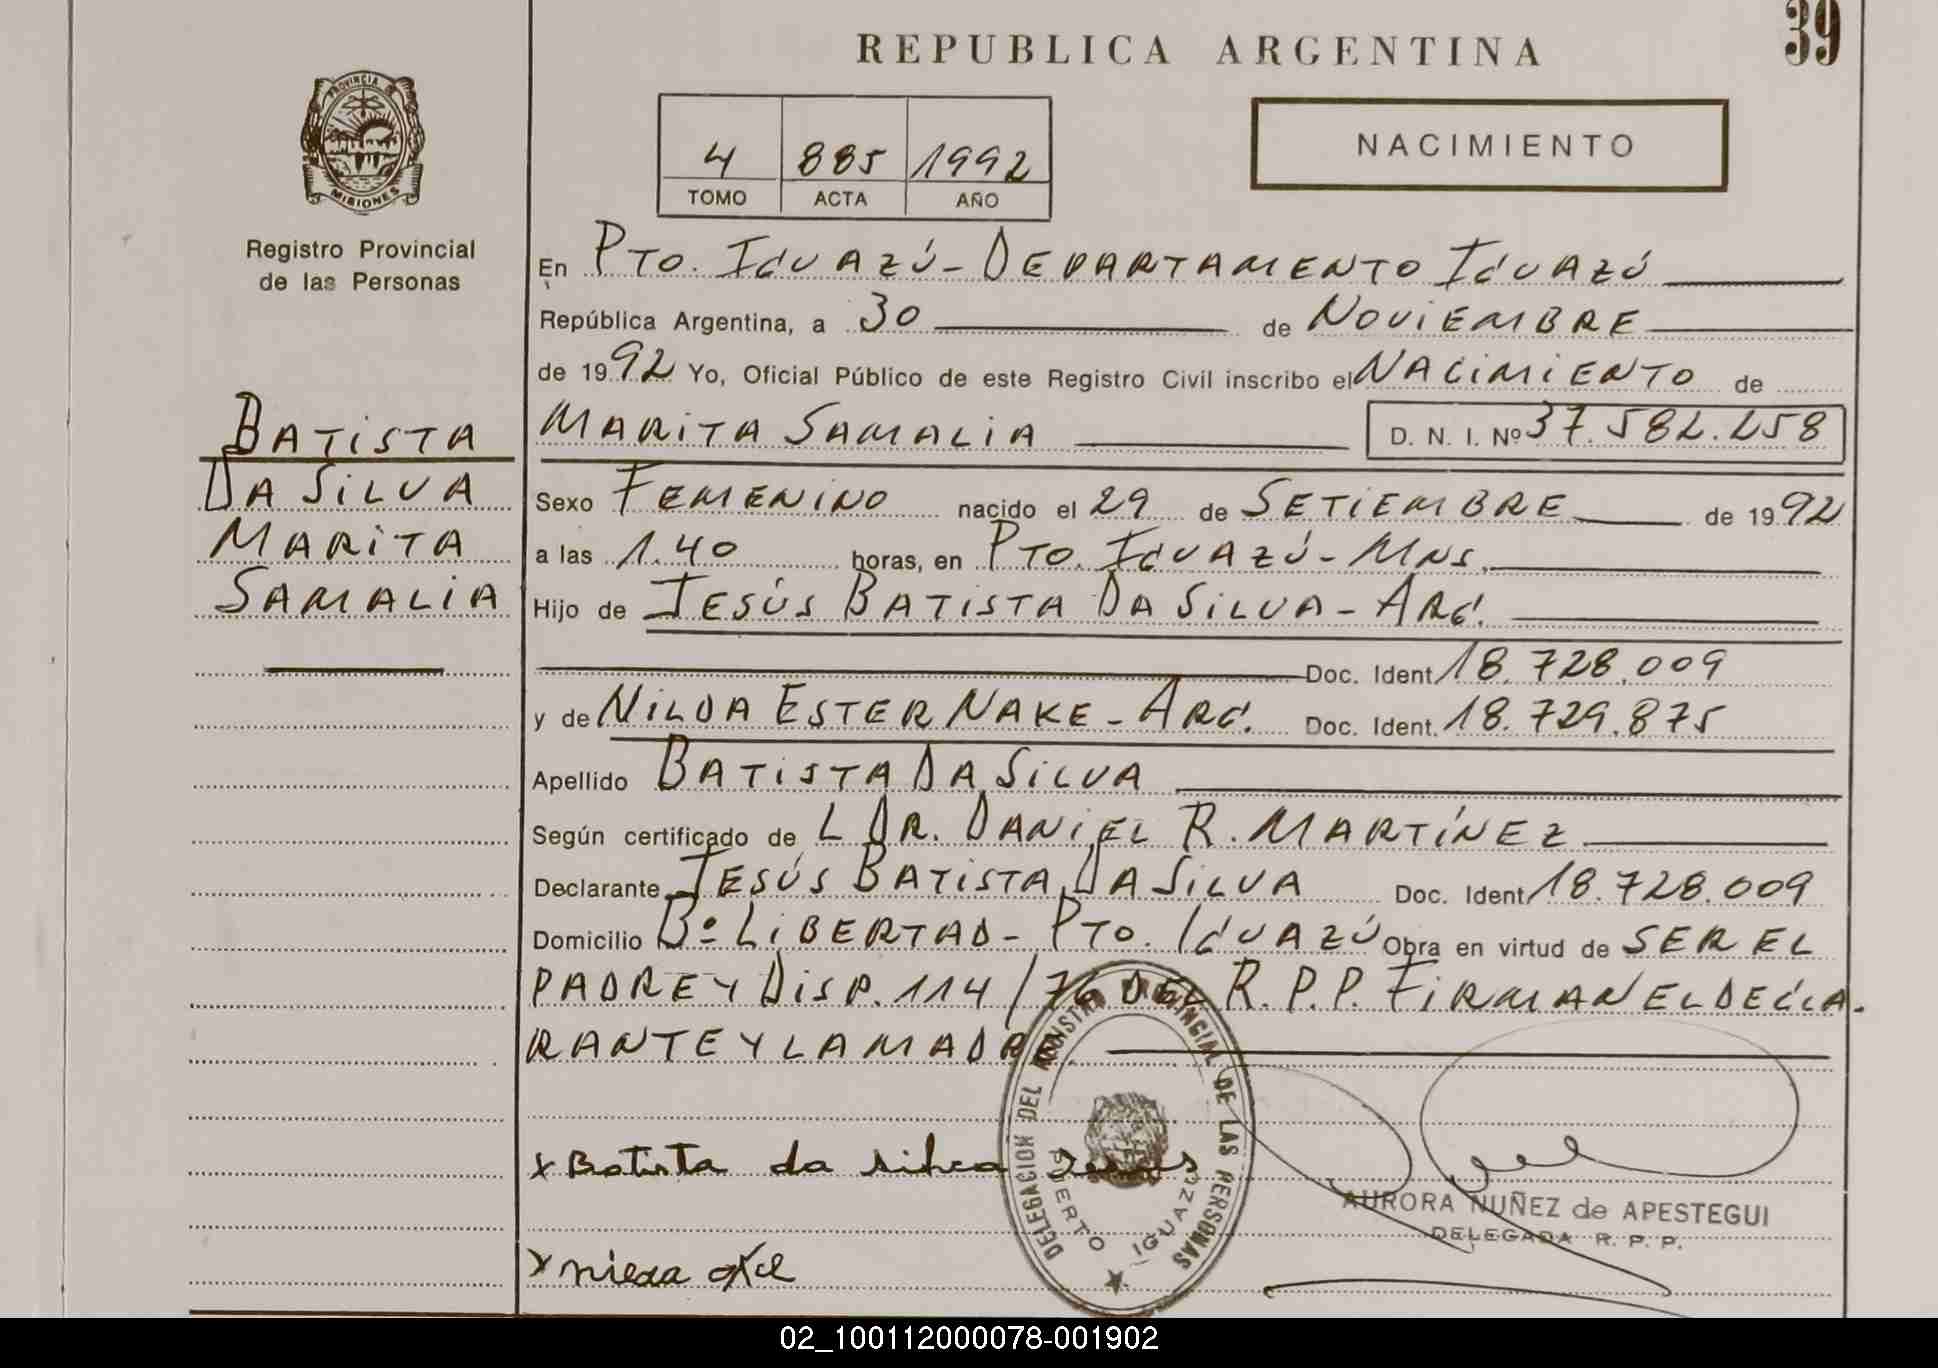 39
REPUBLICA ARGENTINA
PROVINCIA DE
MISIONES
Registro Provincial
de las Personas
4 885 1992
TOMO ACTA AÑO
NACIMIENTO
En PTO. IGUAZÚ - DEPARTAMENTO IGUAZÚ
República Argentina, a 30 de NOVIEMBRE
de 1992 Yo, Oficial Público de este Registro Civil inscribo el NACIMIENTO de
MARITA SAMALIA D. N. I. Nº 37.582.258
BATISTA
DA SILVA
MARITA
SAMALIA
Sexo FEMENINO nacido el 29 de SETIEMBRE de 1992
a las 1.40 horas, en PTO. IGUAZÚ - MNS.
Hijo de JESÚS BATISTA DA SILVA - ARG.
Doc. Ident. 18.728.009
y de NILDA ESTER NAKE - ARG. Doc. Ident. 18.729.875
Apellido BATISTA DA SILVA
Según certificado de L DR. DANIEL R. MARTÍNEZ
Declarante JESÚS BATISTA DA SILVA Doc. Ident. 18.728.009
Domicilio Bº LIBERTAD - PTO. IGUAZÚ Obra en virtud de SER EL
PADRE Y DISP. 114/76 DEL R.P.P. FIRMAN EL DECLA-
RANTE Y LA MADRE.
x Batista da silva Jesus
DELEGACION DEL REGISTRO PROVINCIAL DE LAS PERSONAS
PUERTO IGUAZU
AURORA NUÑEZ de APESTEGUI
DELEGADA R. P. P.
02_100112000078-001902